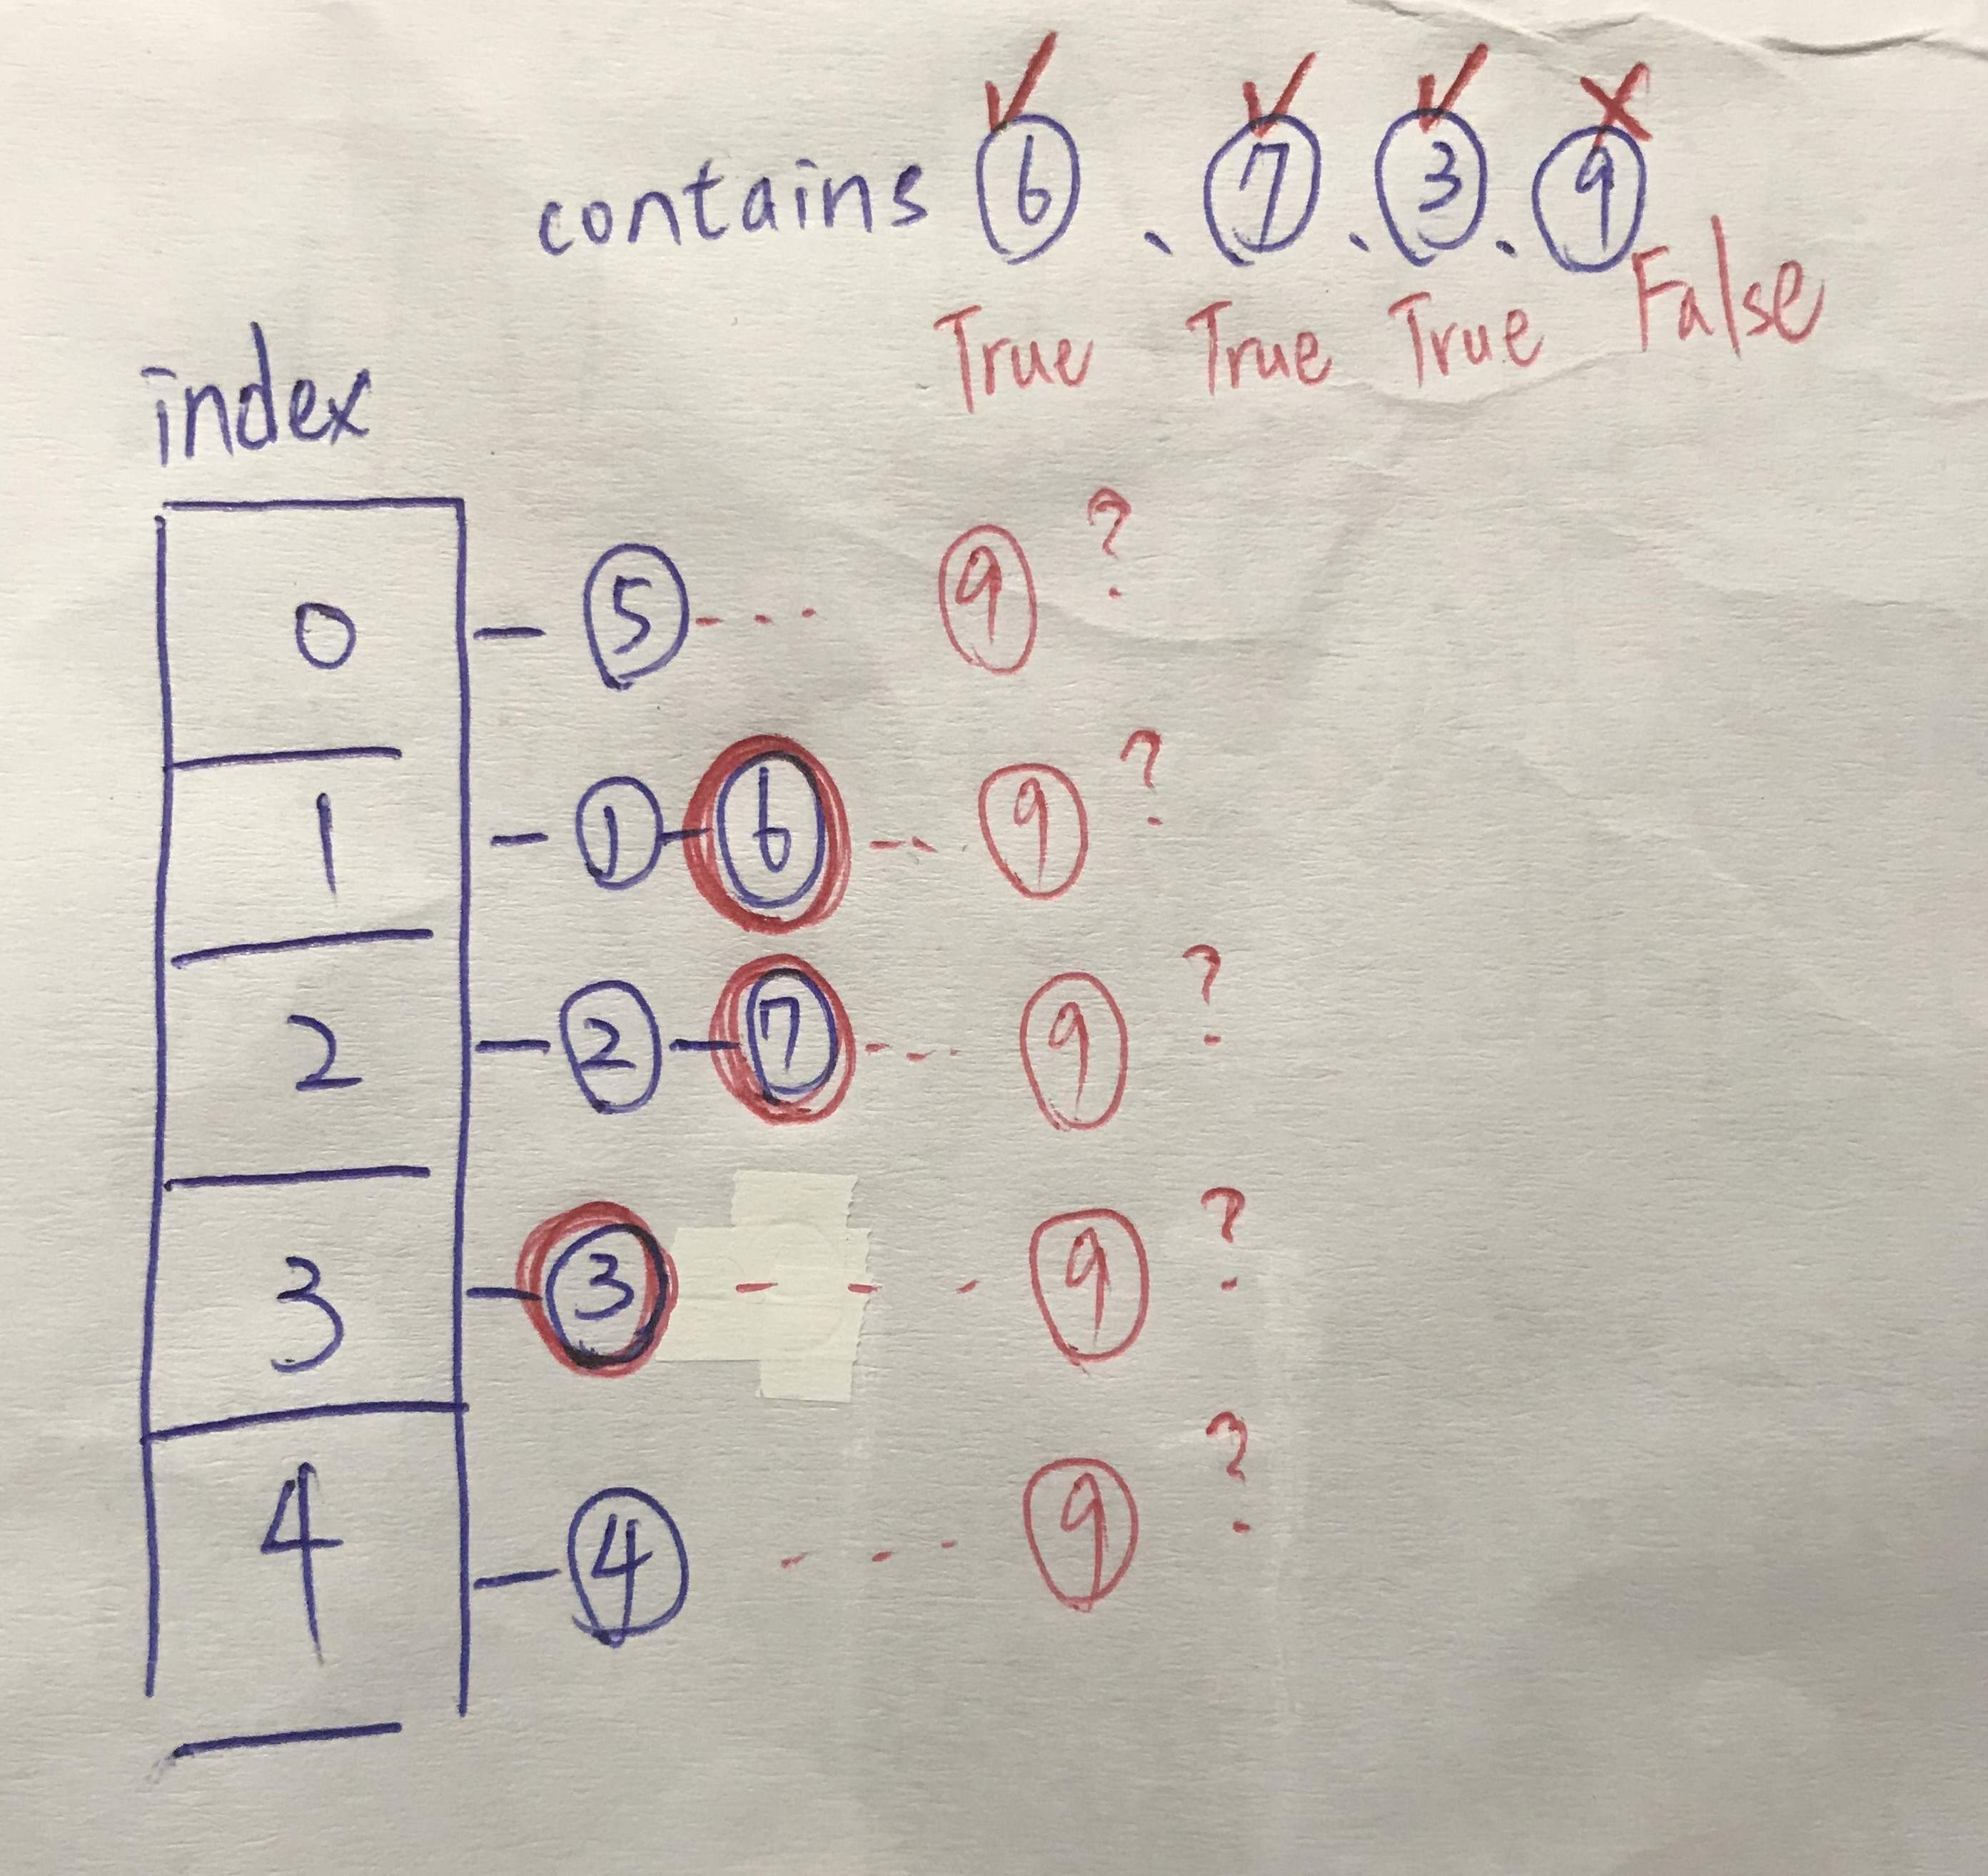 contains 6、7、3、9
True True True False
index
0 5 9 ?
1 1 6 9 ?
2 2 7 9 ?
3 3 9 ?
4 4 9 ?